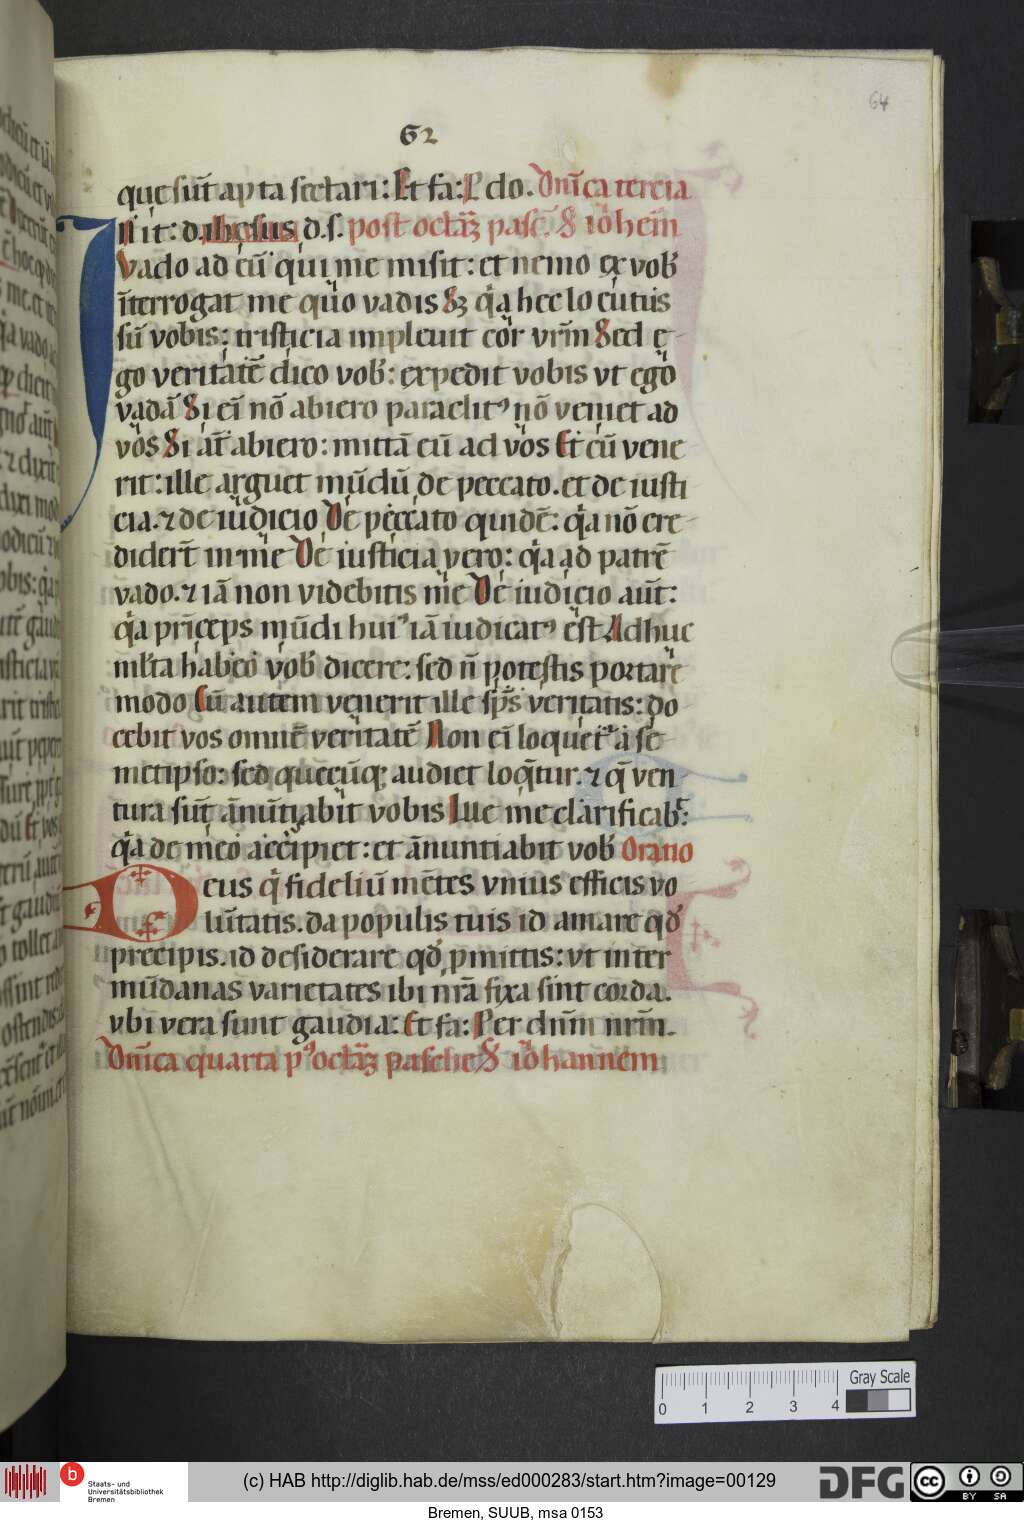 64
62
que sūt apta sectari: Et fa: P do. Dn̄ica tercia
Nit: d. ihesus d. s. post octāꝝ pasc̄. S ioħem̄
Vado ad eū qui me misit: et nemo ex vob̄
īterrogat me quo vadis Sꝫ q̇a hec locutus
sū vobis: tristicia impleuit cor vr̄m Sed e-
go veritatē dico vob̄: expedit vobis vt ego
vadā Si ei̅ nō abiero paraclitꝰ nō veniet ad
vos Si āt abiero: mittā eū ad vos Et cū vene
rit: ille arguet mūdū de peccato. et de iusti
cia. ⁊ de iudicio De peccato quidē: q̇a nō cre-
diderт̄ in me De iusticia vero: q̇a ad patrē
vado. ⁊ iā non videbitis me De iudicio aūt:
q̇a prīceps mūdi huiꝰ iā iudicatꝰ est Adhuc
ml̄ta habeo vob̄ dicere: sed n̄ potestis portare
modo Cū autem venerit ille sp̄s veritatis: do
cebit vos omnē veritatē Non ei̅ loquet̄ a se
metipso: sed quecūqꝫ audiet loq̄tur. ⁊ q̄ ven-
tura sūt ānūtiabit vobis Iłłe me clarificab̄:
q̇a de meo accipiet: et ānuntiabit vob̄ Oratio
Deus q̇ fideliū mētes vnius efficis vo
lūtatis. da populis tuis id amare qđ
precipis. id desiderare qđ ꝓmittis: vt inter
mūdanas varietates ibi nr̄a fixa sint corda.
vbi vera sunt gaudia: Et fa: Per dn̄m nr̄m.
Dn̄ica quarta pꝰ octāꝝ pasche S iohannem
0 1 2 3 4
Gray Scale
b
Staats- und
Universitätsbibliothek
Bremen
(c) HAB http://diglib.hab.de/mss/ed000283/start.htm?image=00129
DFG
cc BY SA
Bremen, SUUB, msa 0153